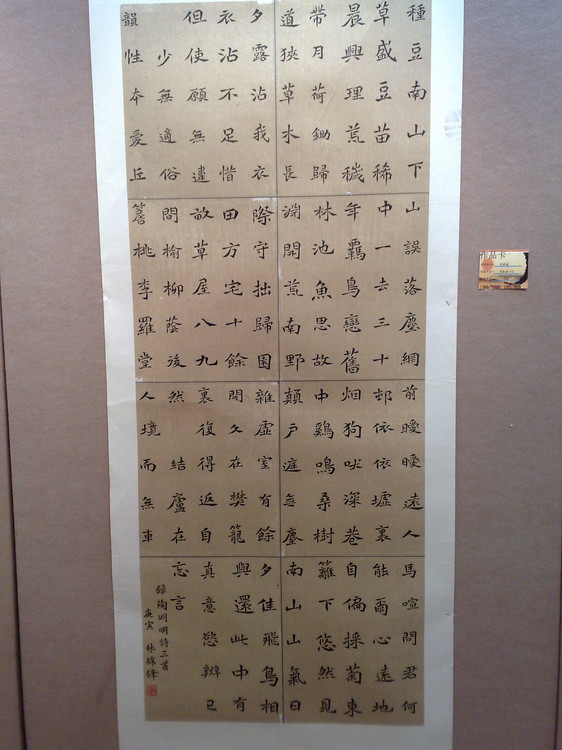 種豆南山下
草盛豆苗稀
晨興理荒穢
帶月荷鋤歸
道狹草木長
夕露沾我衣
衣沾不足惜
但使願無違
少無適俗
韻性本愛丘
山誤落塵網
中一去三十
年羈鳥戀舊
林池魚思故
淵開荒南野
際守拙歸園
田方宅十餘
畝草屋八九
間榆柳蔭後
簷桃李羅堂
前曖曖遠人
邨依依墟裏
烟狗吠深巷
中鷄鳴桑樹
顛戶庭无塵
雜虛室有餘
閒久在樊籠
裏復得返自
然 結廬在
人境而無車
馬喧問君何
能爾心遠地
自偏採菊東
籬下悠然見
南山山氣日
夕佳飛鳥相
與還此中有
真意慾辨已
忘言
錄陶渊明詩三首
庚寅 林錦鋒
作品卡